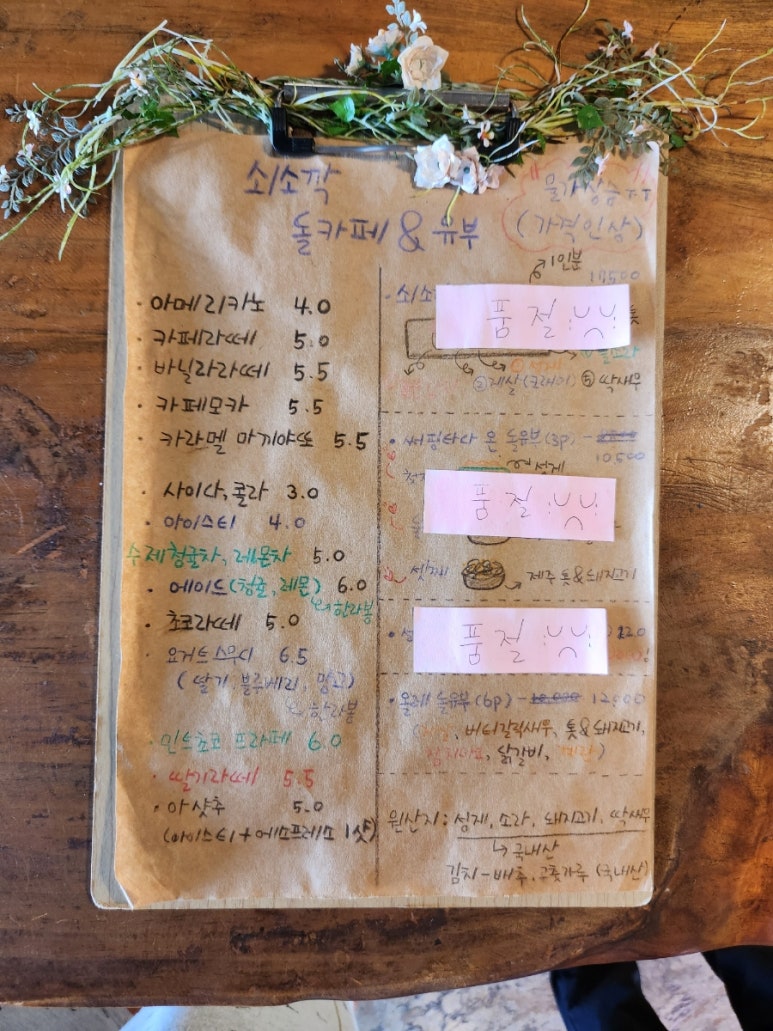 쇠소깍
돌카페 & 유부
물가상승ㅜㅜ
(가격인상)
· 아메리카노 4.0
· 카페라떼 5.0
· 바닐라라떼 5.5
· 카페모카 5.5
· 카라멜 마끼야또 5.5
· 사이다, 콜라 3.0
· 아이스티 4.0
수제청귤차, 레몬차 5.0
· 에이드(청귤, 레몬) 6.0
한라봉
· 쵸코라떼 5.0
· 요거트스무디 6.5
(딸기 블루베리, 망고)
한라봉
· 민트쵸코 프라페 6.0
· 딸기라떼 5.5
· 아샷추 5.0
(아이스티 + 에소프레소 1샷)
1인분
17,500
· 쇠소
품절
② 게살(크래미) ⑤ 딱새우
· 써핑타다 온 돌유부(3p) -
10,500
성게
품절
셋째
제주 톳&돼지고기
품절
· 올레 돌유부(6p) - 10,000 12,000
버터갈릭새우, 톳&돼지고기,
참치마요, 닭갈비, 계란)
원산지: 성게, 소라, 돼지고기, 딱새우
↳ 국내산
김치-배추, 고춧가루 (국내산)